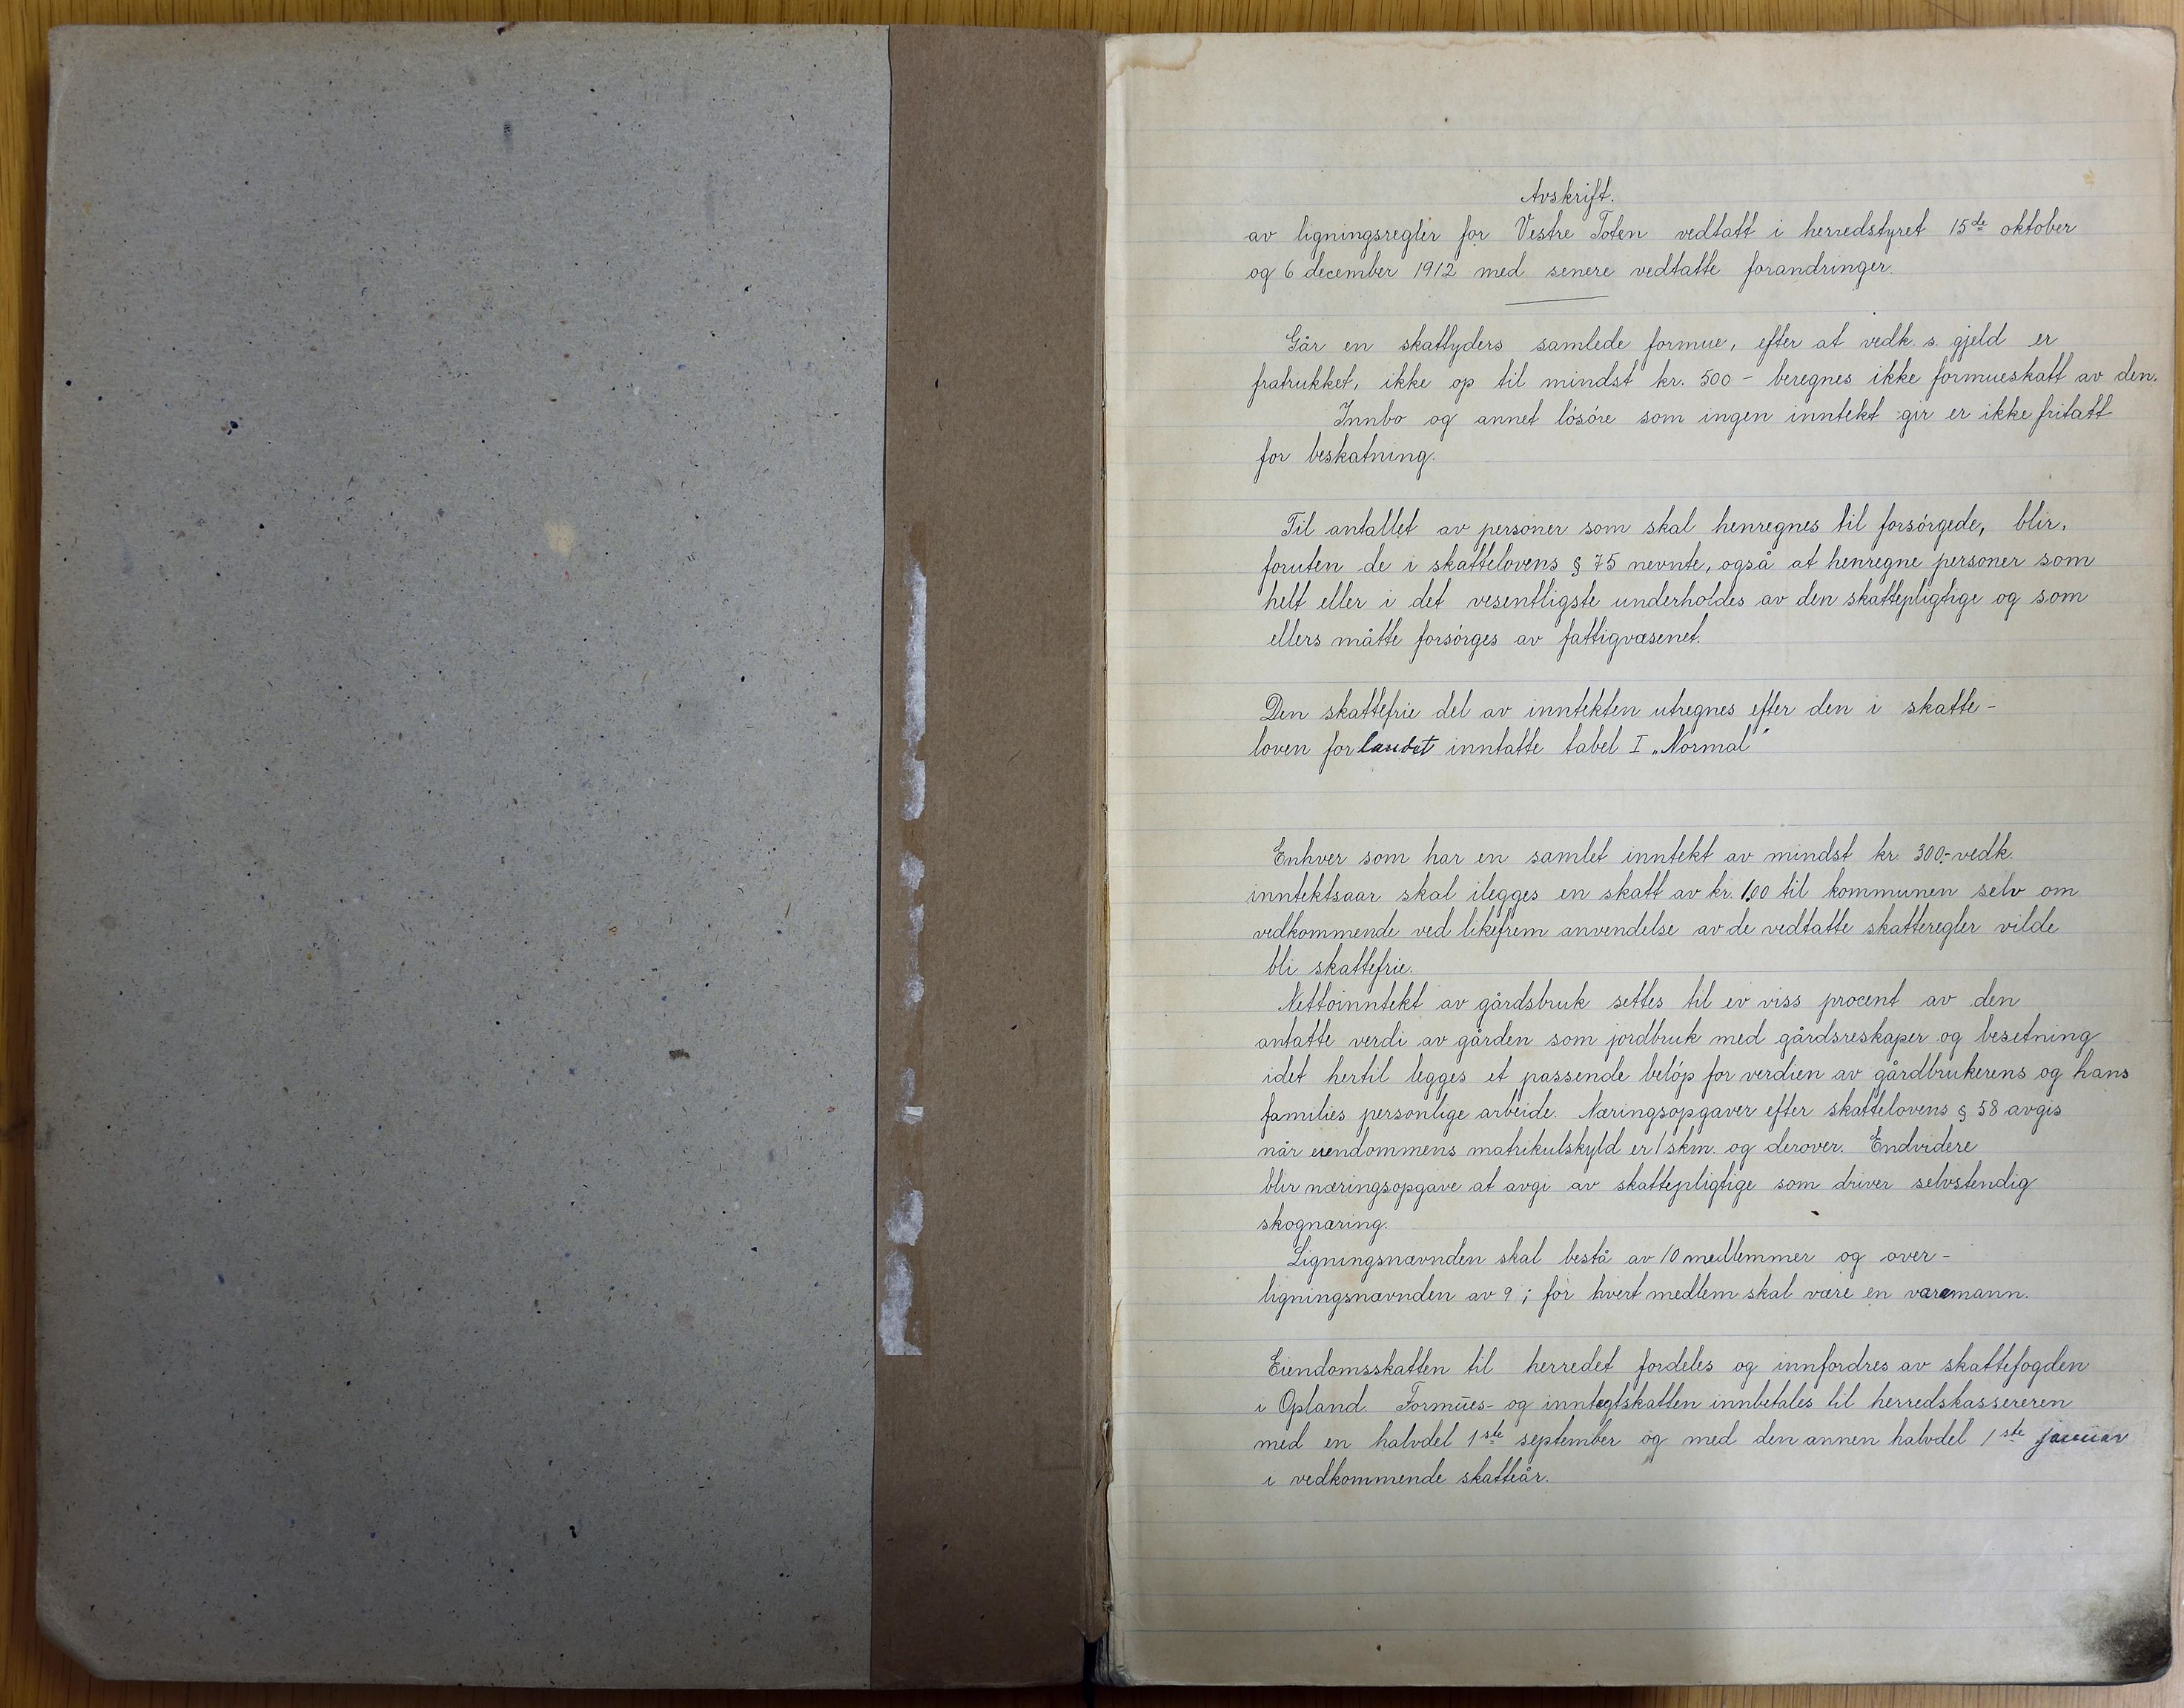 Avskrift.
av ligningsregler for Vestre Toten vedtatt i herredstyret 15de oktober
og 6 december 1912 med senere vedtatte forandringer.
Går en skattyders samlede formue, efter at vedk. s. gjeld er
fratrukket, ikke op til mindst kr. 500 - beregnes ikke formueskatt av den.
Innbo og annet lösöre som ingen inntekt gir er ikke fritatt
for beskatning.
Til antallet av personer som skal henregnes til forsörgede, blir,
foruten de i skattelovens § 75 nevnte, også at henregne personer som
helt eller i det vesentligste underholdes av den skattepligtige og som
ellers måtte forsörges av fattigvæsenet.
Den skattefrie del av inntekten utregnes efter den i skatte-
loven for landet inntatte tabel I „Normal"
Enhver som har en samlet inntekt av mindst kr. 300.- vedk.
inntektsaar skal ilegges en skatt av kr. 1,00 til kommunen selv om
vedkommende ved likefrem anvendelse av de vedtatte skatteregler vilde
bli skattefrie.
Nettoinntekt av gårdsbruk settes til ev viss procent av den
antatte verdi av gården som jordbruk med gårdsreskaper og besetning
idet hertil legges et passende belöp for verdien av gårdbrukerens og hans
families personlige arbeide. Næringsopgaver efter skattelovens § 58 avgis
når eiendommens matrikulskyld er 1 skm. og derover. Endvidere
blir næringsopgave at avgi av skattepligtige som driver selvstendig
skognæring.
Ligningsnævnden skal bestå av 10 medlemmer og over-
ligningsnævnden av 9; for hvert medlem skal være en varamann.
Eiendomsskatten til herredet fordeles og innfordres av skattefogden
i Opland. Formues- og inntegtskatten innbetales til herredskassereren
med en halvdel 1ste september og med den annen halvdel 1ste januar
i vedkommende skatteår.